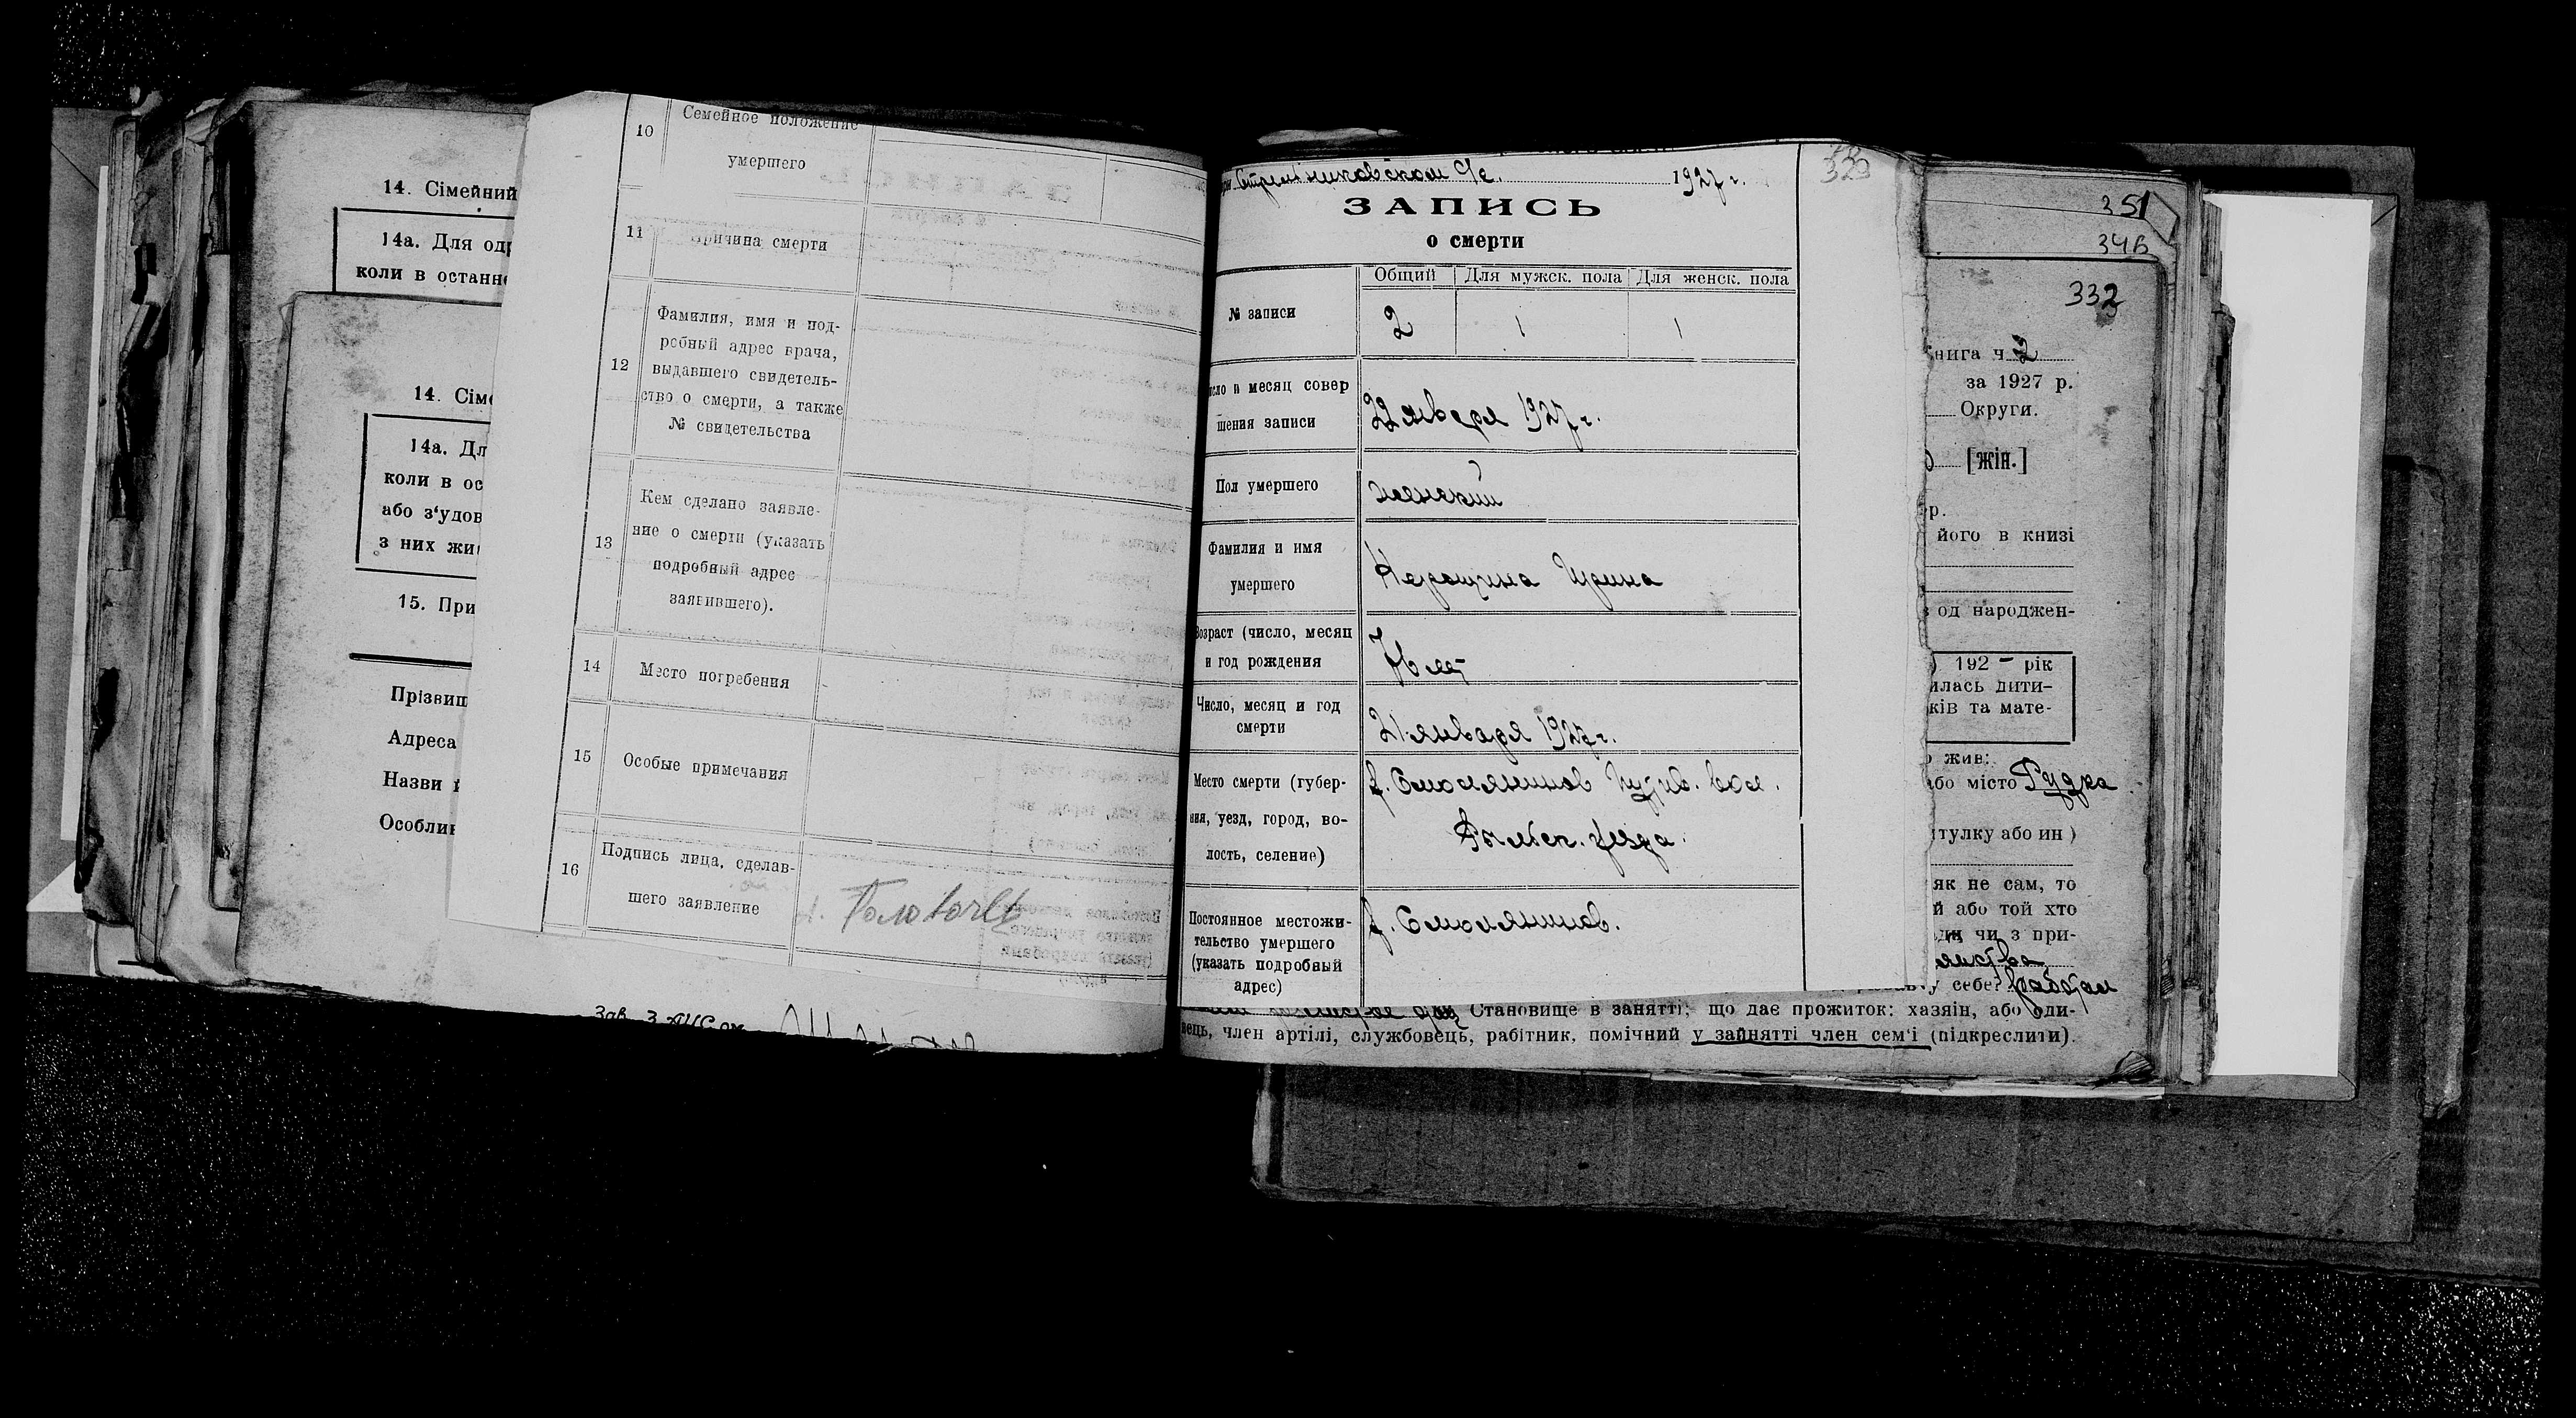 14. Сімейний
14а. Для
коли в останн
14. Сім
14а. Дл
коли в ос
або з'удов
з них жи
15. При
Прізвищ
Адреса
Назви
Особлив
Зав. ЗАГС'ом
10 Семейное положение
умершего
11 Причина смерти
12 Фамилия, имя и под-
робный адрес врача,
выдавшего свидетель-
ство о смерти, а также
№ свидетельства
13 Кем сделано заявле-
ние о смерти (указать
подробный адрес
заявившего).
14 Место погребения
15 Особые примечания
16 Подпись лица, сделав-
шего заявление
с/с. 1927 г.
ЗАПИСЬ
о смерти
Общий Для мужск. пола Для женск. пола
№ записи 2 1 1
исло и месяц совер
шения записи 22 января 1927 г.
Пол умершего женский
Фамилия и имя
умершего Ирина
Возраст (число, месяц
и год рождения лет
Число, месяц и год
смерти 21 января 1927 г.
Место смерти (губер-
ния, уезд, город, во- х. Смолянинов вол.
лость, селение) уезда.
Постоянное местожи-
тельство умершего х. Смолянинов.
(указать подробный
адрес)
329
351
346
332
нига ч 2
за 1927 р.
Округи.
[жін.]
р.
його в книзі
од народжен-
192 – рік
илась дити-
ків та мате-
жив:
або місто Рудка
тулку або ин)
як не сам, то
й або той хто
ди чи з при-
у себе?
Становище в занятті; що дає прожиток: хазяін, або оди-
вець, член артілі, службовець, рабітник, помічний у зайнятті член сем'і (підкреслити).